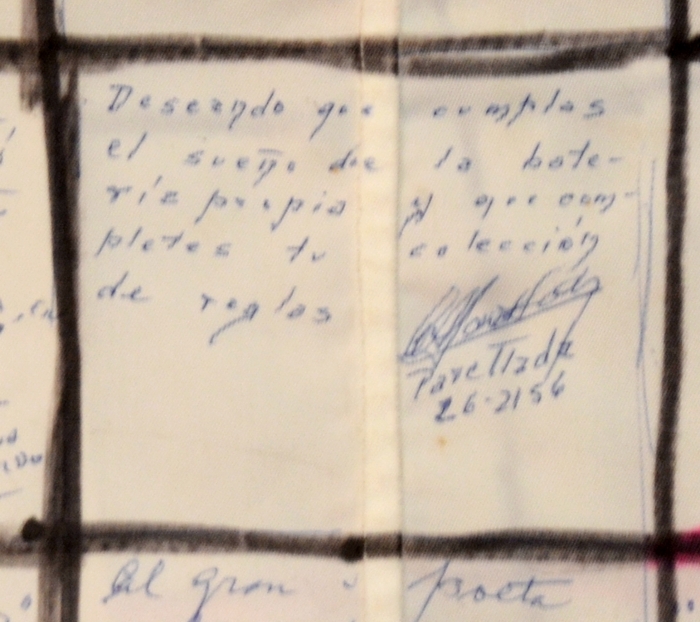 Deseando que cumplas
el sueño de la bate-
ría propia y que com-
pletes tu colección
de reglas
Parellada
26-2156
Al gran poeta